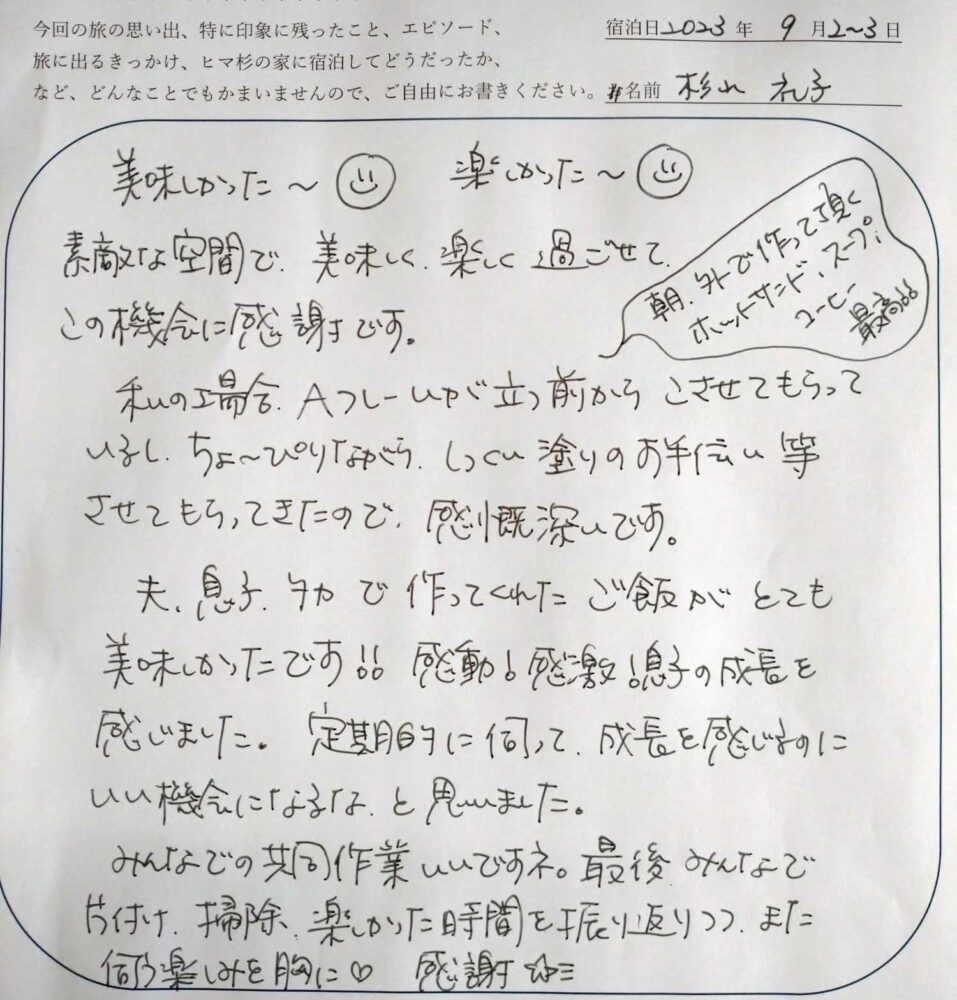 今回の旅の思い出、特に印象に残ったこと、エピソード、
旅に出るきっかけ、ヒマ杉の家に宿泊してどうだったか、
など、どんなことでもかまいませんので、ご自由にお書きください。
宿泊日 2023 年 9 月 2~3 日
お名前 杉山 礼子
美味しかった～ 楽しかった～
朝、外で作って頂く
ホットサンド、スープ、
コーヒー
最高!!
素敵な空間で、美味しく、楽しく過ごせて、
この機会に感謝です。
私の場合、Aフレームが立つ前からこさせてもらって
いるし、ちょ～ぴりながら、しっくい塗りのお手伝い等
させてもらってきたので、感慨深いです。
夫、息子、タカで作ってくれたご飯がとても
美味しかったです!! 感動!感激!息子の成長を
感じました。定期的に伺って、成長を感じるのに
いい機会になるな、と思いました。
みんなでの共同作業いいですネ。最後、みんなで
片付け、掃除、楽しかった時間を振り返りつつ、また
伺う楽しみを胸に♡ 感謝☆ミ